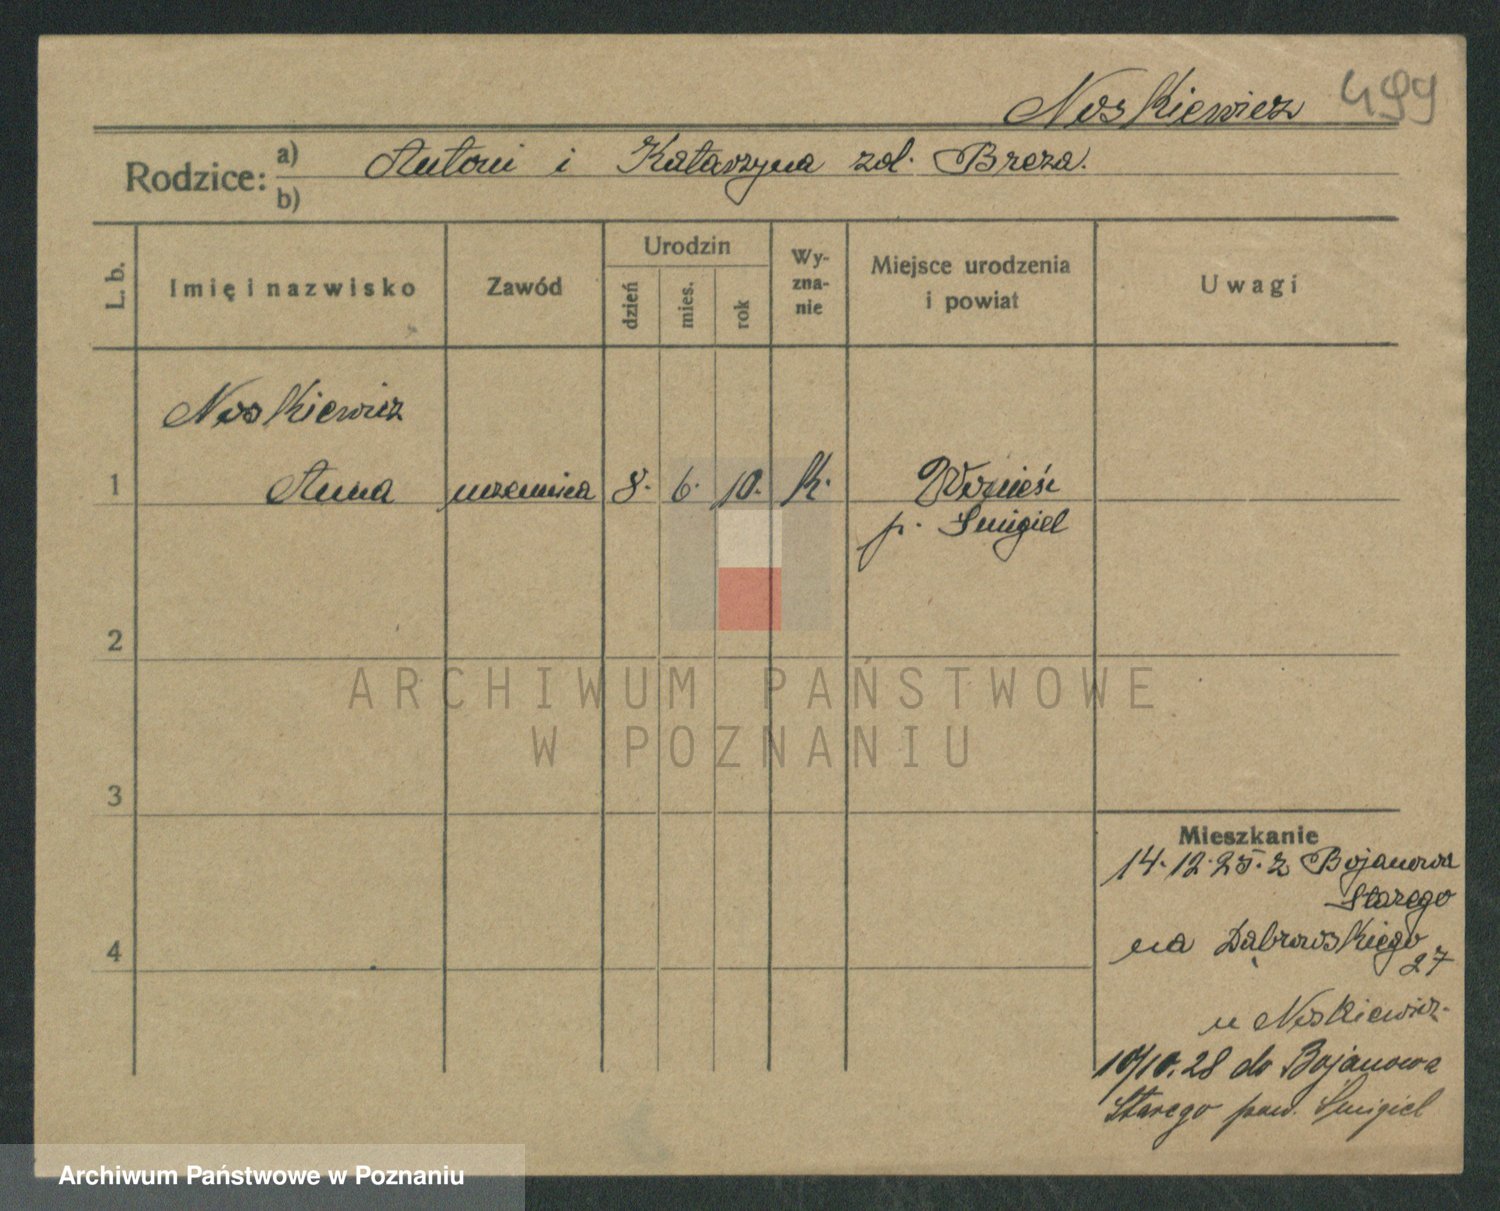 Noskiewicz 499
Rodzice: a) Antoni i Katarzyna zd. Breza.
b)
L. b.
Imię i nazwisko
Zawód
Urodzin
dzień
mies.
rok
Wy-
zna-
nie
Miejsce urodzenia
i powiat
Uwagi
Noskiewicz
1 Anna uczennica 8. 6. 10. k. Wonieść
p. Śmigiel
2
3
4
Mieszkanie
14.12.25. z Bojanowa
Starego
na Dąbrowskiego
27
u Noskiewicz.
10/10.28 do Bojanowa
Starego pow. Śmigiel
ARCHIWUM PAŃSTWOWE
W POZNANIU
Archiwum Państwowe w Poznaniu